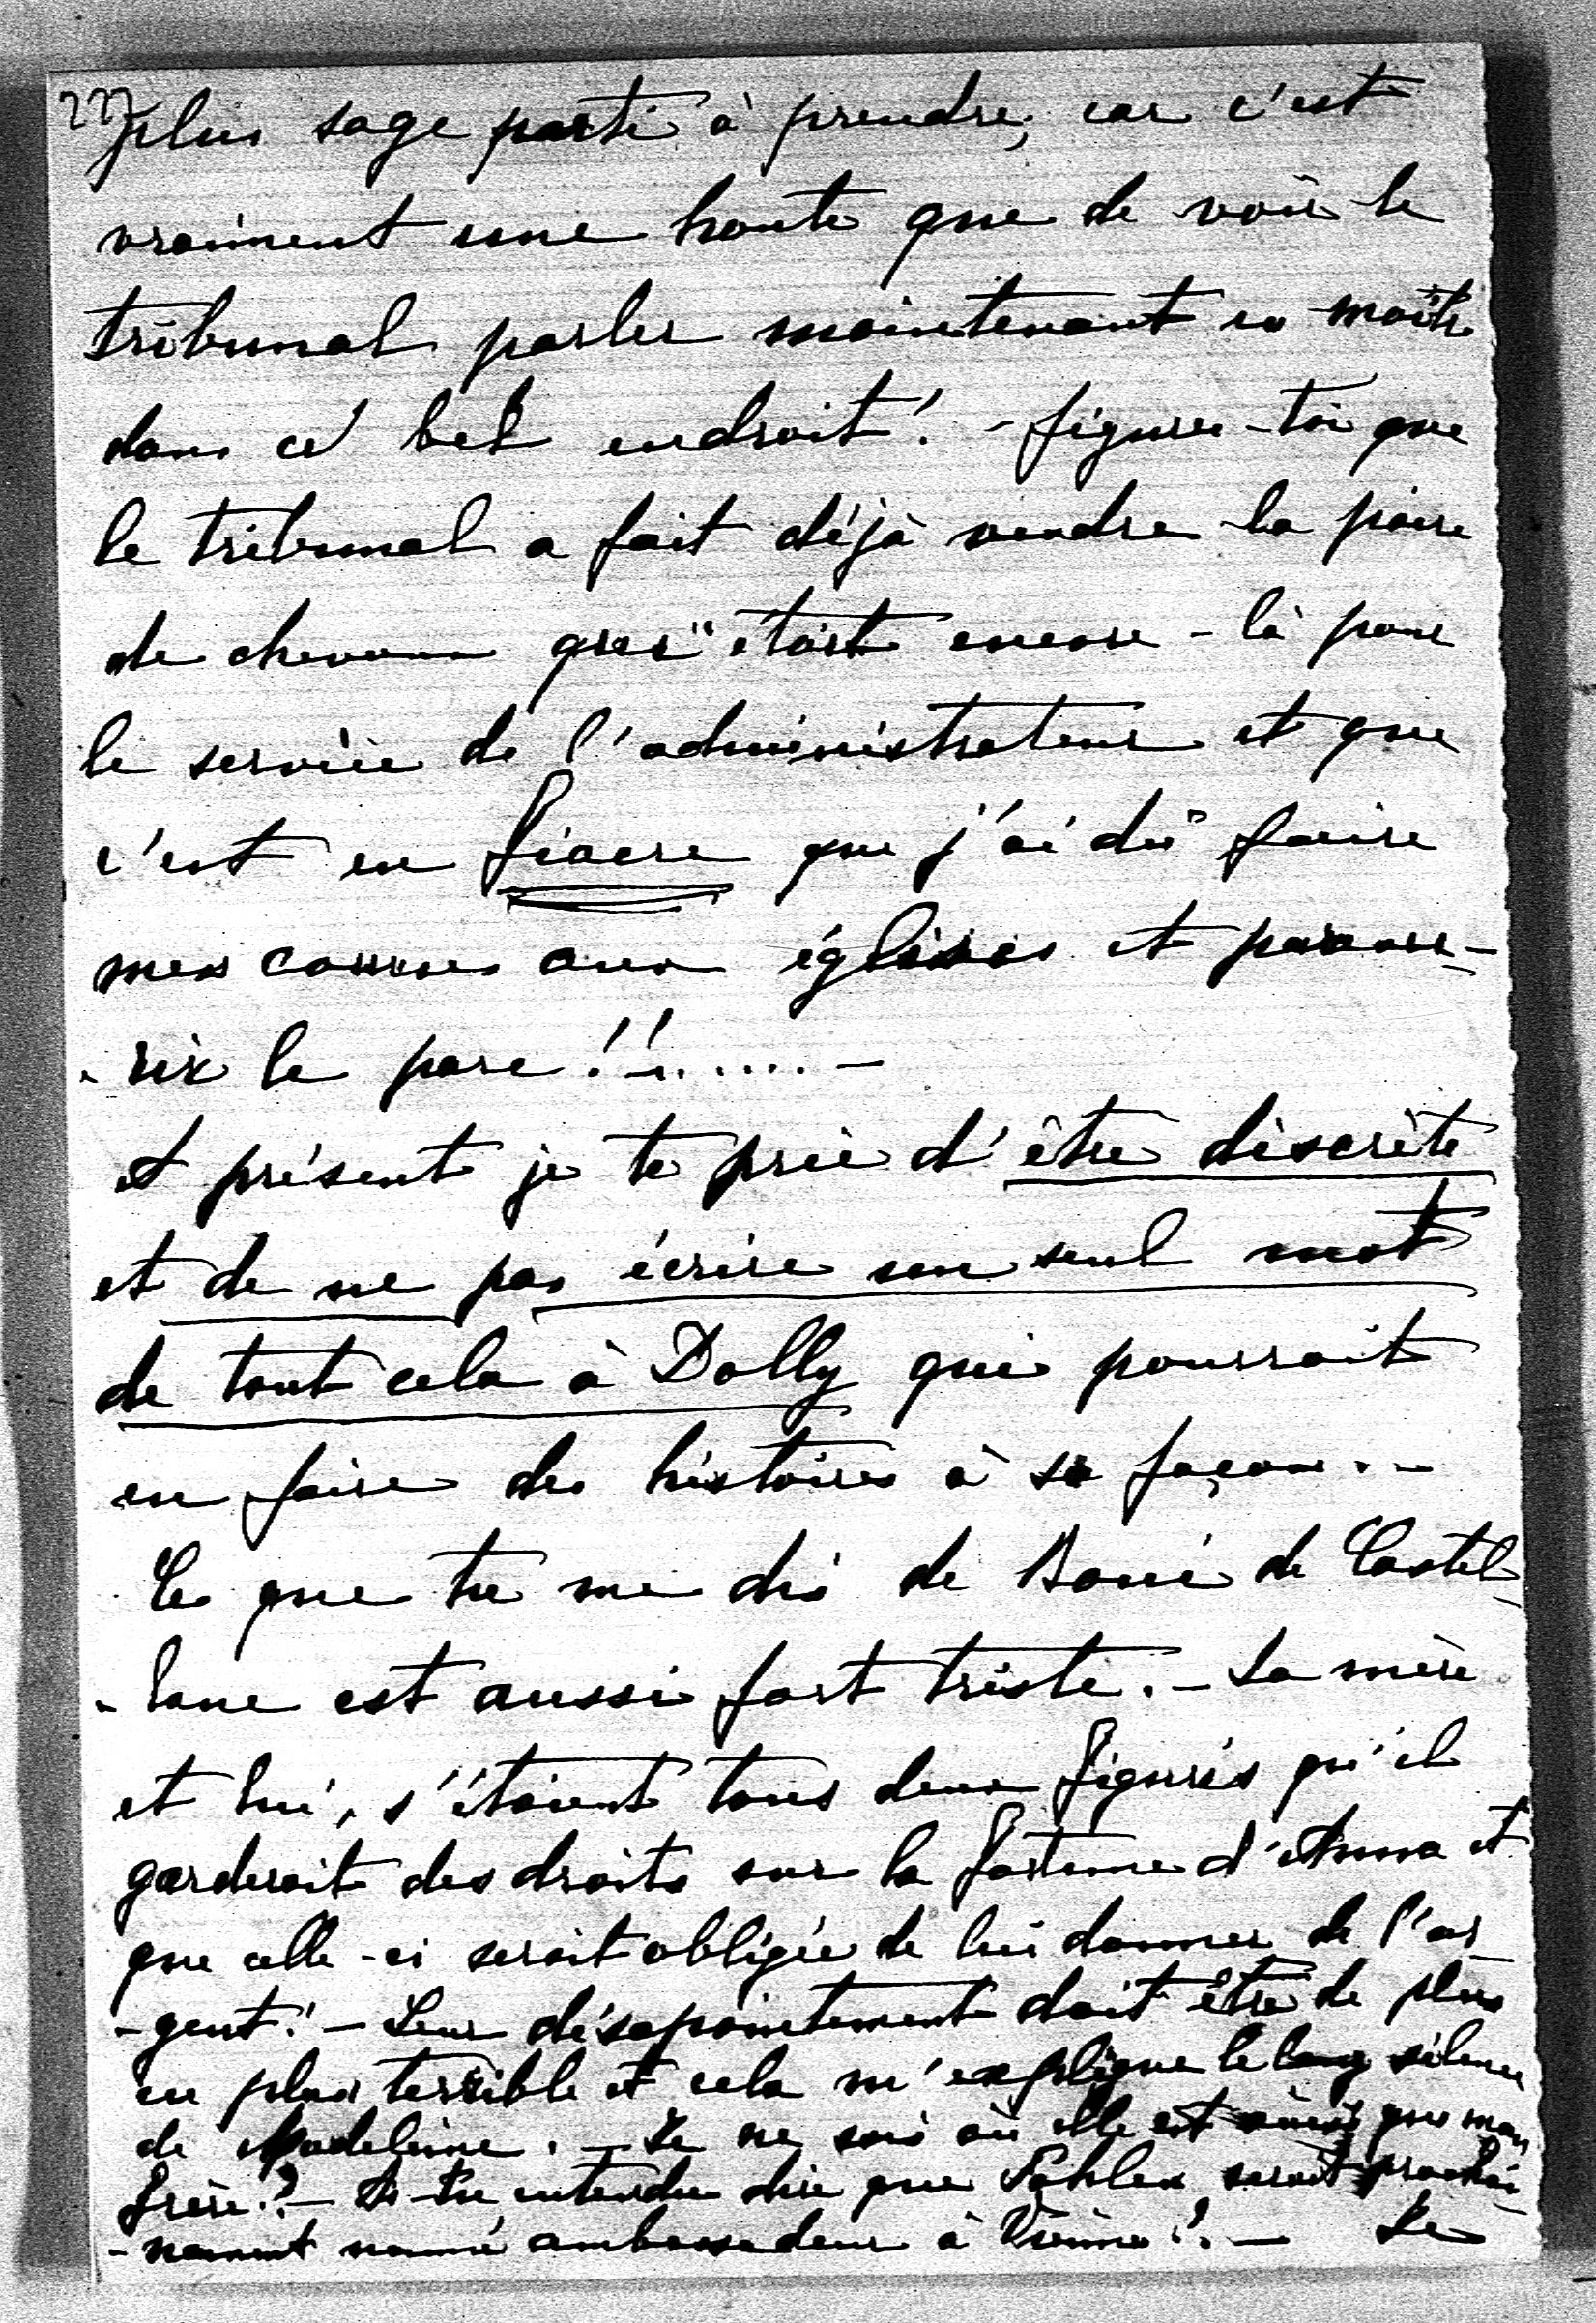 227
plus sage parti à prendre, car c'est
vraiment une honte que de voir le
tribunal parler maintenant en maître
dans ce bel endroit! - figure-toi que
le tribunal a fait déjà vendre la paire
de chevaux qui était encore-là pour
le service de l'administrateur et que
c'est en fiacre que j'ai dû faire
mes courses aux églises et parcour-
-rir le parc!!...... -
A présent je te prie d'être discrète
et de ne pas écrire un seul mot
de tout cela à Dolly qui pourrait
en faire des histoires à sa façon. -
Ce que tu me dis de Boni de Castel-
-lane est aussi fort triste. - La mère
et lui, s'étaient tous deux figurés qu'il
garderait des droits sur la fortune d'Anna et
que celle-ci serait obligée de lui donner de l'ar-
-gent! - Leur désapointement doit être de plus
en plus terrible et cela m'explique le long silence
de Madeleine. - Je ne sais où elle est ainsi que mon
frère? - As-tu entendu dire que Pahlen serait prochai-
-nement nommé ambassadeur à Vienne? - Le